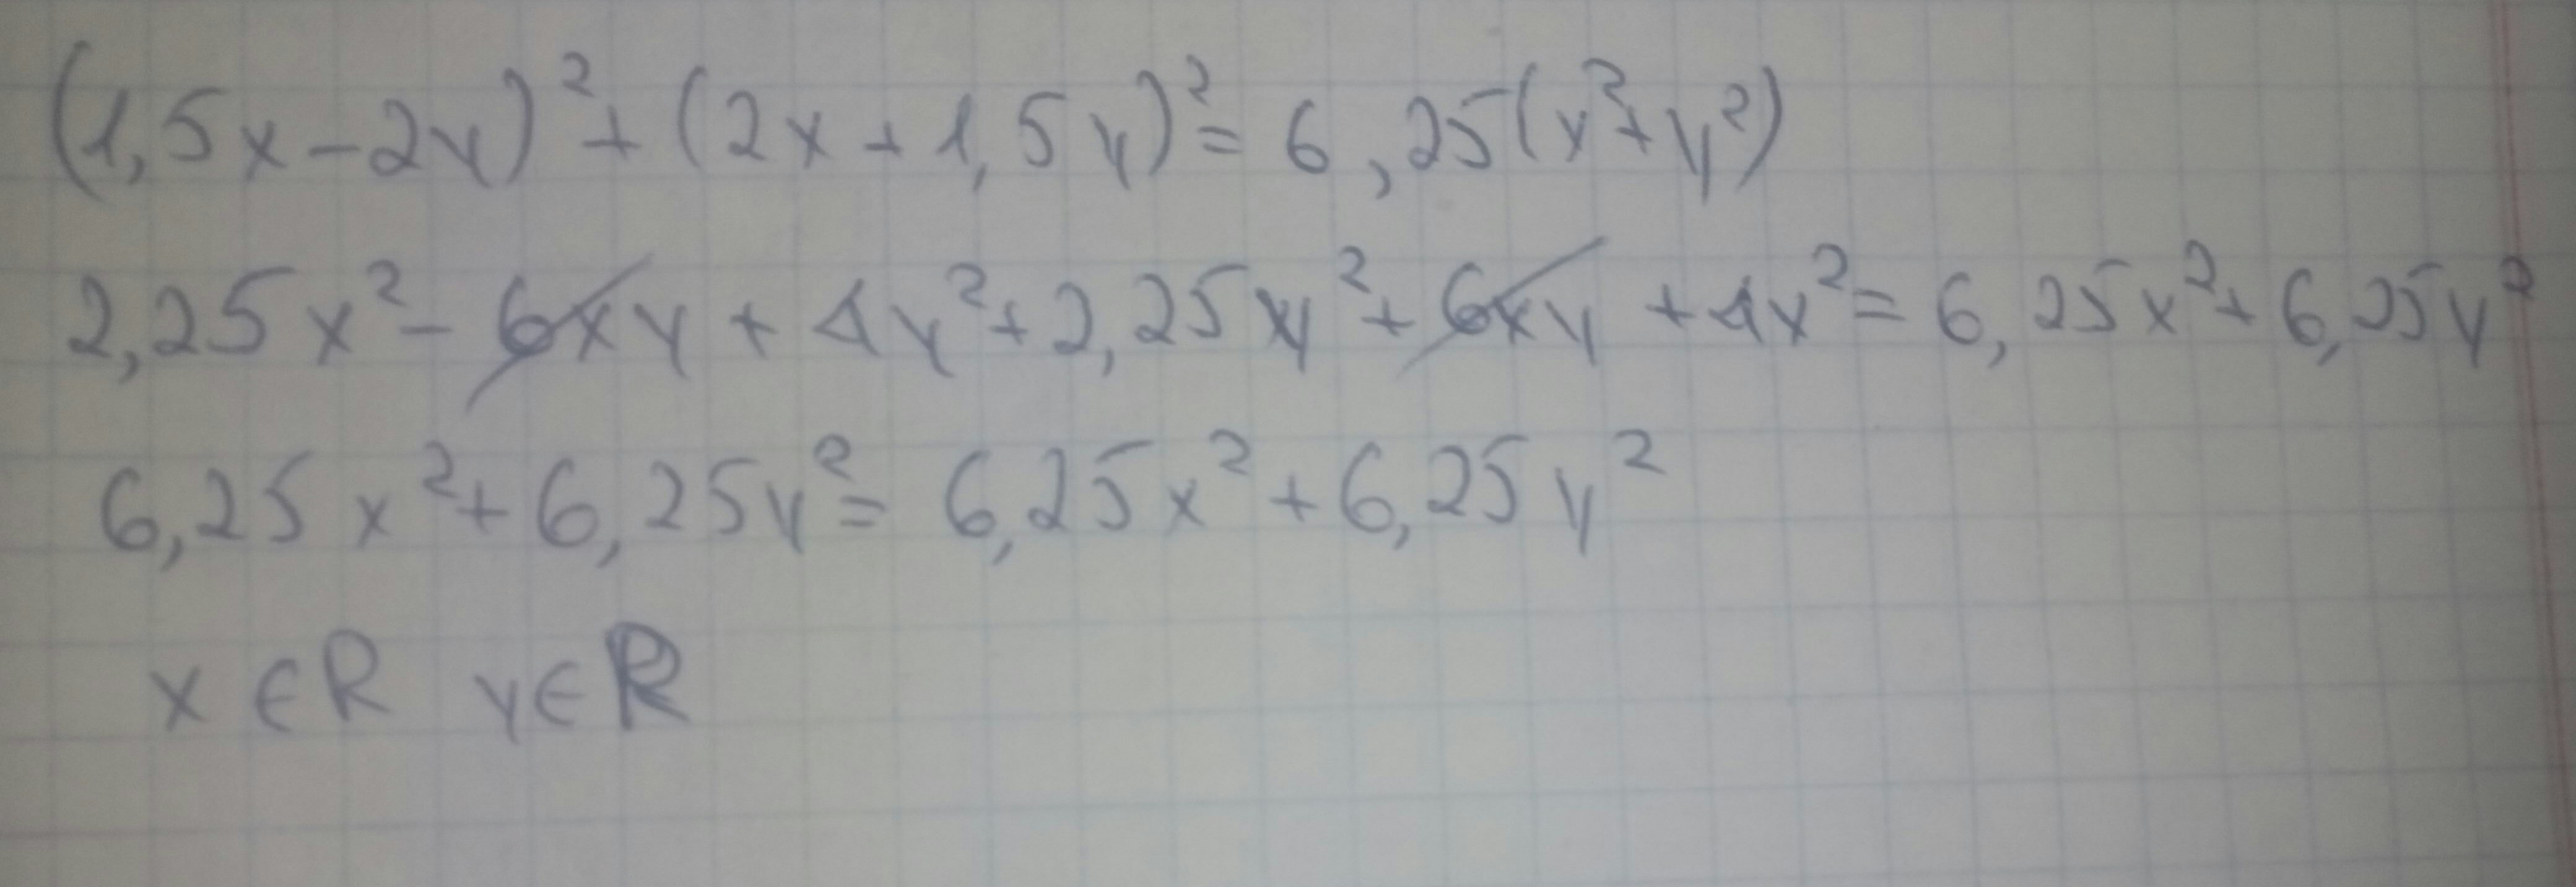 (1,5x-2y)²+(2x+1,5y)²=6,25(x²+y²)
2,25x²-6xy+4y²+2,25y²+6xy+4x²=6,25x²+6,25y²
6,25x²+6,25y²=6,25x²+6,25y²
x∈R y∈R